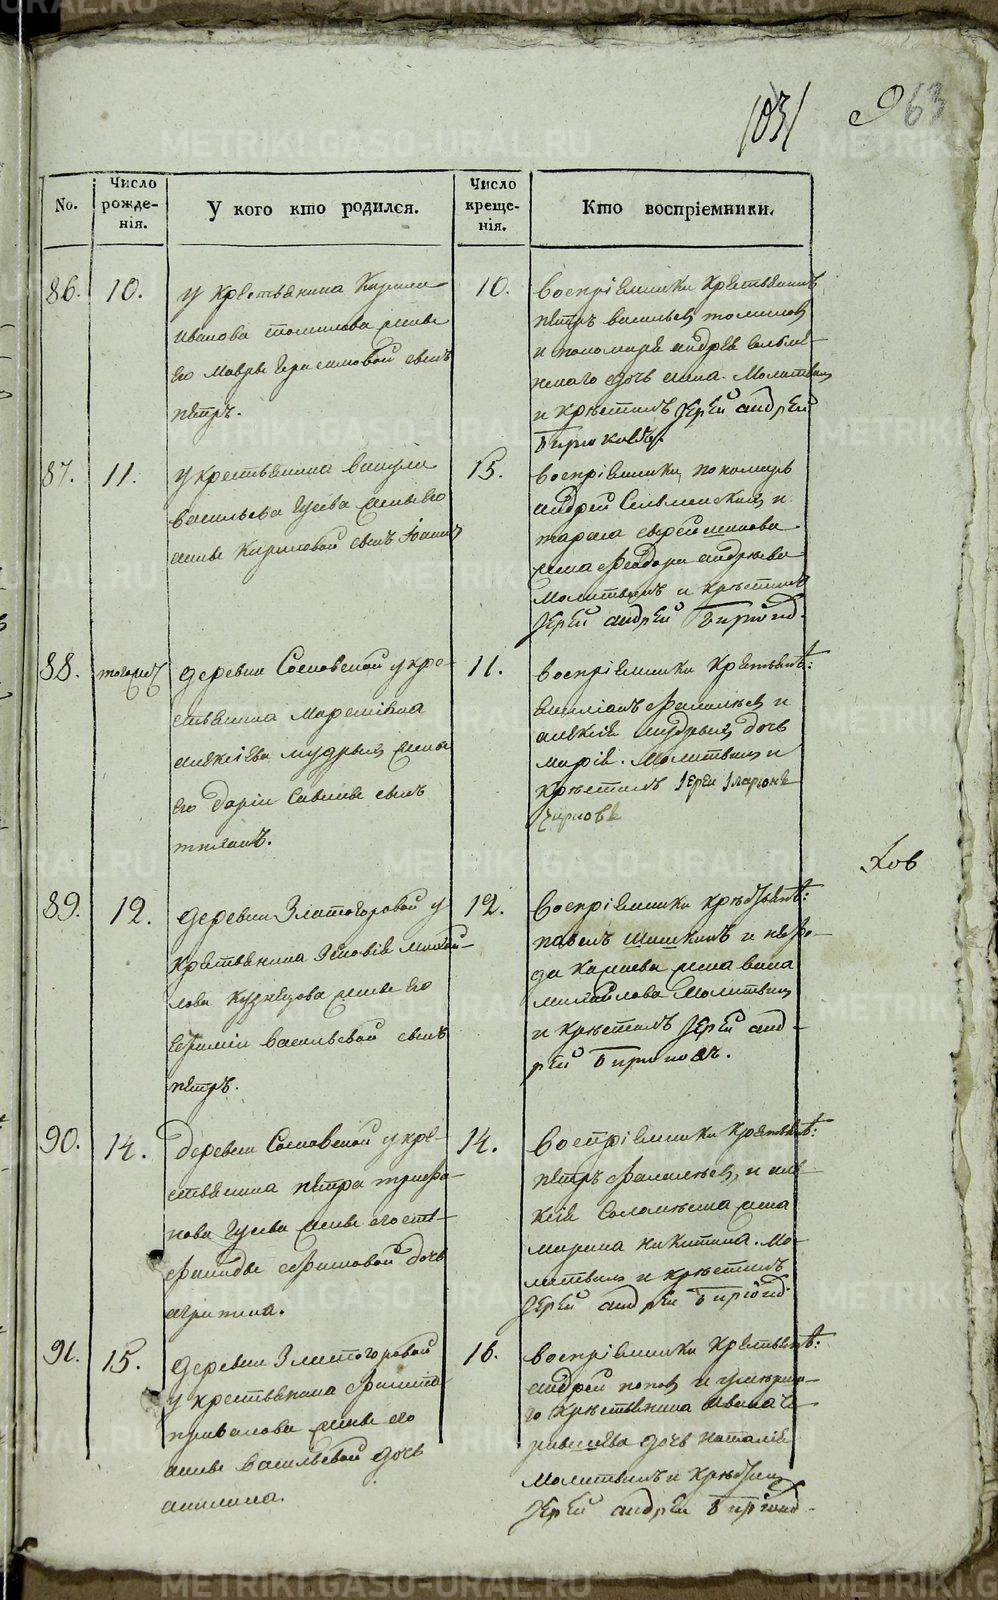 1031 963
No.
Число рожде-
нія.
У кого кто родился.
Число креще-
нія.
Кто воспріемники.
86. 10.
у крестьянина Кирила
Иванова Томилова жены
его Мавры Герасимовой сынъ
петръ.
10.
воспріемники крестьянинъ
петръ васильевъ томиловъ
и пономаря андрея
дочь анна. Молитвилъ
и крестилъ Іерей андрей
Бирюковъ.
87. 11.
у крестьянина вавулы
васильева Гусева жены его
анны Кириловой сынъ Іоаннъ
15.
воспріемники, пономарь
андрей и
тараса
жена Феодора андреева
Молитвилъ и крестилъ
Іерей андрей Бирюковъ.
88. тогожъ
деревни Сосновской у кре-
стьянина
алексіева мудрыхъ жены
его Даріи Савины сынъ
11.
воспріемники крестьянъ:
и
алексія мудрыхъ дочь
марія. Молитвилъ и
крестилъ Іерей Іларіонъ
Чирковъ
Ков
89. 12.
деревни Златогоровой у
крестьянина Зѣновія Михай-
лова Кузнецова жены его
васильевой сынъ
петръ.
12.
Воспріемники крестьянъ:
павелъ шишкинъ и
жена
михайлова Молитвилъ
и крестилъ Іерей анд-
рей Бирюковъ.
90. 14.
Деревни Сосновской у кре-
стьянина петра трифа-
нова Гусева жены его сте-
фаниды ефимовой дочь
агрипина.
14.
Воспріемники крестьянъ:
петръ и але-
ксія жена
марина никитина. Мо-
литвилъ и крестилъ
Іерей андрей Бирюковъ
91. 15.
деревни Златогоровой
у крестьянина филипа
привалова жены его
анны васильевой дочь
акилина.
16.
воспріемники крестьянъ:
андрей поповъ и умерша-
го крестьянина ивана
дочь наталія
Молитвилъ и крестилъ
Іерей андрей Бирюковъ.
METRIKI.GASO-URAL.RU